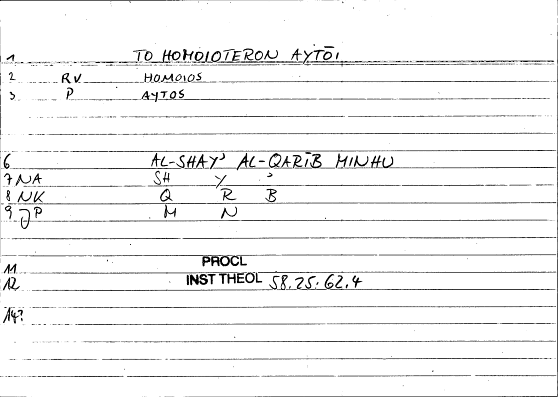 1 TO HOMOIOTERON AYTŌI
2 RV HOMOIOS
3 P AYTOS
6 AL-SHAYʾ AL-QARĪB MINHU
7 NA SH Y ʾ
8 NK Q R B
9 JP M N
11 PROCL
12 INST THEOL 58.25:62.4
14?